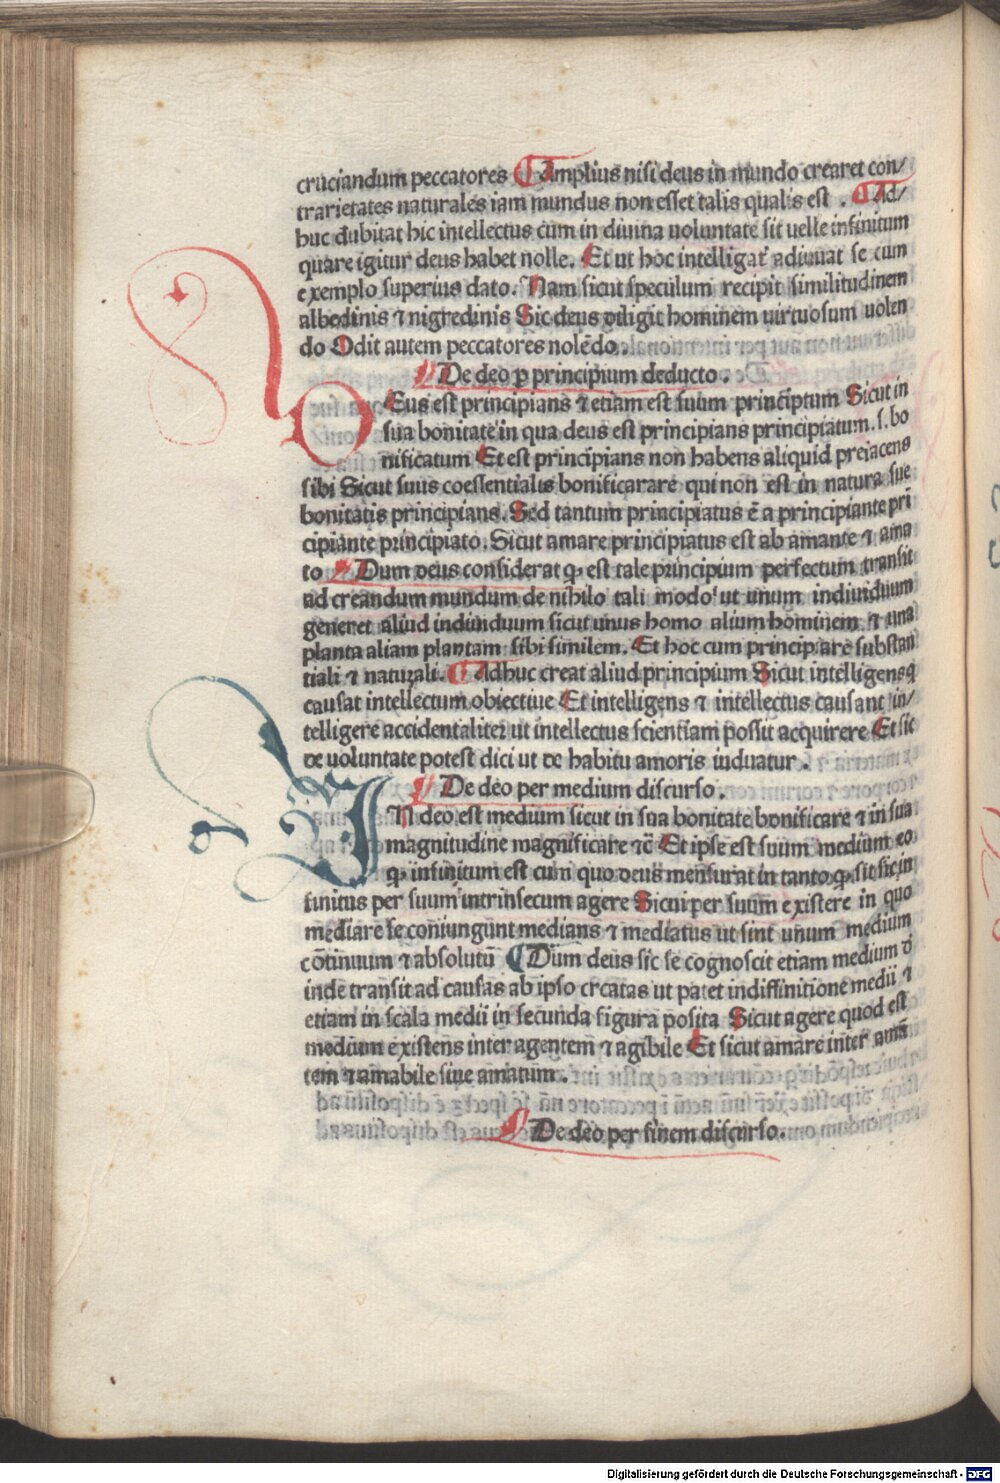 cruciandum peccatores ⸿ Amplius nisi deus in mundo crearet con/
trarietates naturales iam mundus non esset talis qualis est . ⸿ Ad/
huc dubitat hic intellectus cum in diuina uoluntate sit uelle infinitum
quare igitur deus habet nolle. Et ut hoc intelligat adiuuat se cum
exemplo superius dato. Nam sicut speculum recipit similitudinem
albedinis ⁊ nigredinis Sic deus diligit hominem uirtuosum uolen
do Odit autem peccatores nolēdo.
De deo ꝑ principium deducto.
DEus est principians ⁊ etiam est suum principium Sicut in
sua bonitate in qua deus est principians principiatum .s. bo
nificatum Et est principians non habens aliquid preiacens
sibi Sicut suus coessentialis bonificarare qui non est in natura sue
bonitatis principians. Sed tantum principiatus ē a principiante pri
cipiante principiato. Sicut amare principiatus est ab amante ⁊ ama
to ⸿ Dum deus considerat ꝙ est tale principium perfectum transit
ad creandum mundum de nihilo tali modo ut unum indiuiduum
generet aliud indiuiduum sicut unus homo alium hominem ⁊ una
planta aliam plantam sibi similem. Et hoc cum principiare substan
tiali ⁊ naturali. ⸿ Adhuc creat aliud principium Sicut intelligens q
causat intellectum obiectiue Et intelligens ⁊ intellectus causant in/
telligere accidentaliter ut intellectus scientiam possit acquirere Et sit
de uoluntate potest dici ut de habitu amoris induatur .
De deo per medium discurso.
INsi deo est medium sicut in sua bonitate bonificare ⁊ in sua
magnitudine magnificare ⁊c̄ Et ipse est suum medium eo
ꝙ infinitum est cum quo deus mensurat in tanto ꝙ sit sic in
finitus per suum intrinsecum agere Sicut per suum existere in quo
mediare se coniungunt medians ⁊ mediatus ut sint unum medium
cōtinuum ⁊ absolutū ⸿ Dum deus sic se cognoscit etiam medium d
inde transit ad causas ab ipso creatas ut patet in diffinitione medii ⁊
etiam in scala medii in secunda figura posita Sicut agere quod est
medium existens inter agentem ⁊ agibile Et sicut amare inter amā
tem ⁊ amabile siue amatum .
De deo per finem discurso.
Digitalisierung gefördert durch die Deutsche Forschungsgemeinschaft - DFG